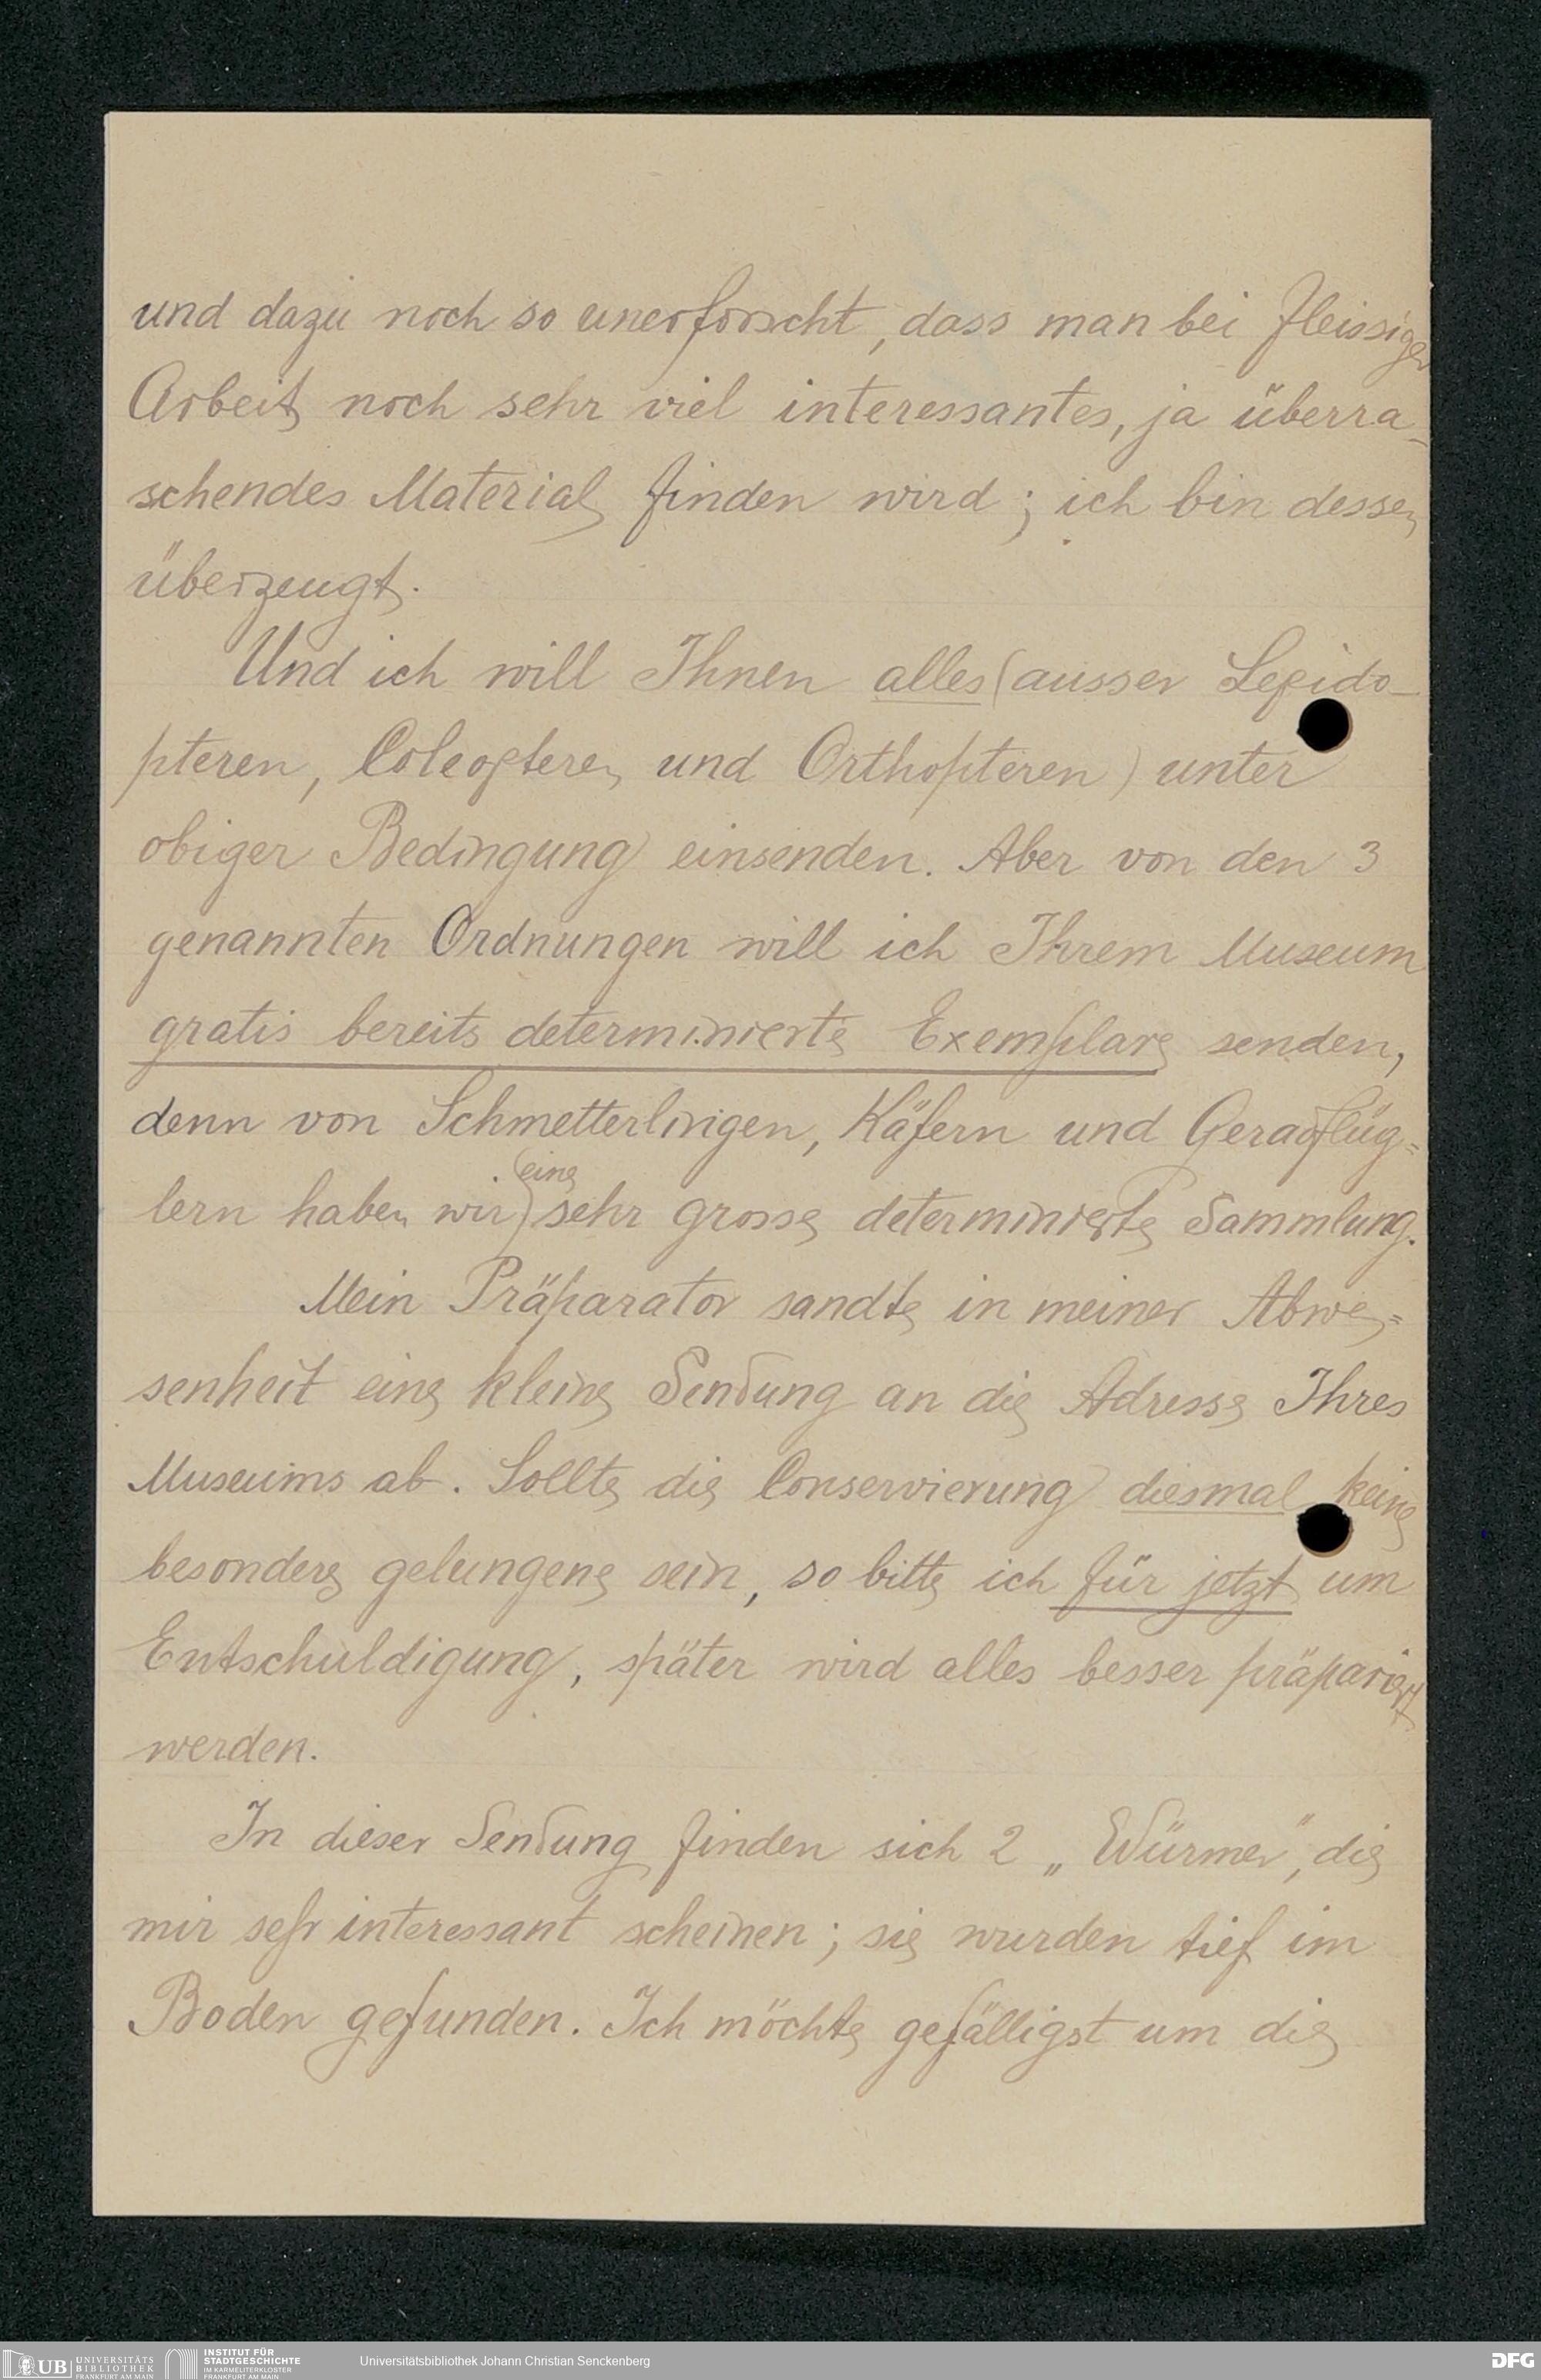 und dazu noch so unerforscht, dass man bei fleissiger
Arbeit noch sehr viel interessantes, ja überra-
schendes Material finden wird; ich bin dessen
überzeugt.
Und ich will Ihnen alles (ausser Lepido-
pteren, Coleopteren und Orthopteren) unter
obiger Bedingung einsenden. Aber von den 3
genannten Ordnungen will ich Ihrem Museum
gratis bereits determinierte Exemplare senden,
denn von Schmetterlingen, Käfern und Geradflüg=
lern haben wir eine sehr grosse determinierte Sammlung.
Mein Präparator sandte in meiner Abwe=
senheit eine kleine Sendung an die Adresse Ihres
Museums ab. Sollte die Conservierung diesmal keine
besonders gelungene sein, so bitte ich für jetzt um
Entschuldigung, später wird alles besser präpariert
werden.
In dieser Sendung finden sich 2 „Würmer", die
mir sehr interessant scheinen; sie wurden tief im
Boden gefunden. Ich möchte gefälligst um die
UB UNIVERSITÄTS
BIBLIOTHEK
FRANKFURT AM MAIN
INSTITUT FÜR
STADTGESCHICHTE
IM KARMELITERKLOSTER
FRANKFURT AM MAIN
Universitätsbibliothek Johann Christian Senckenberg
DFG